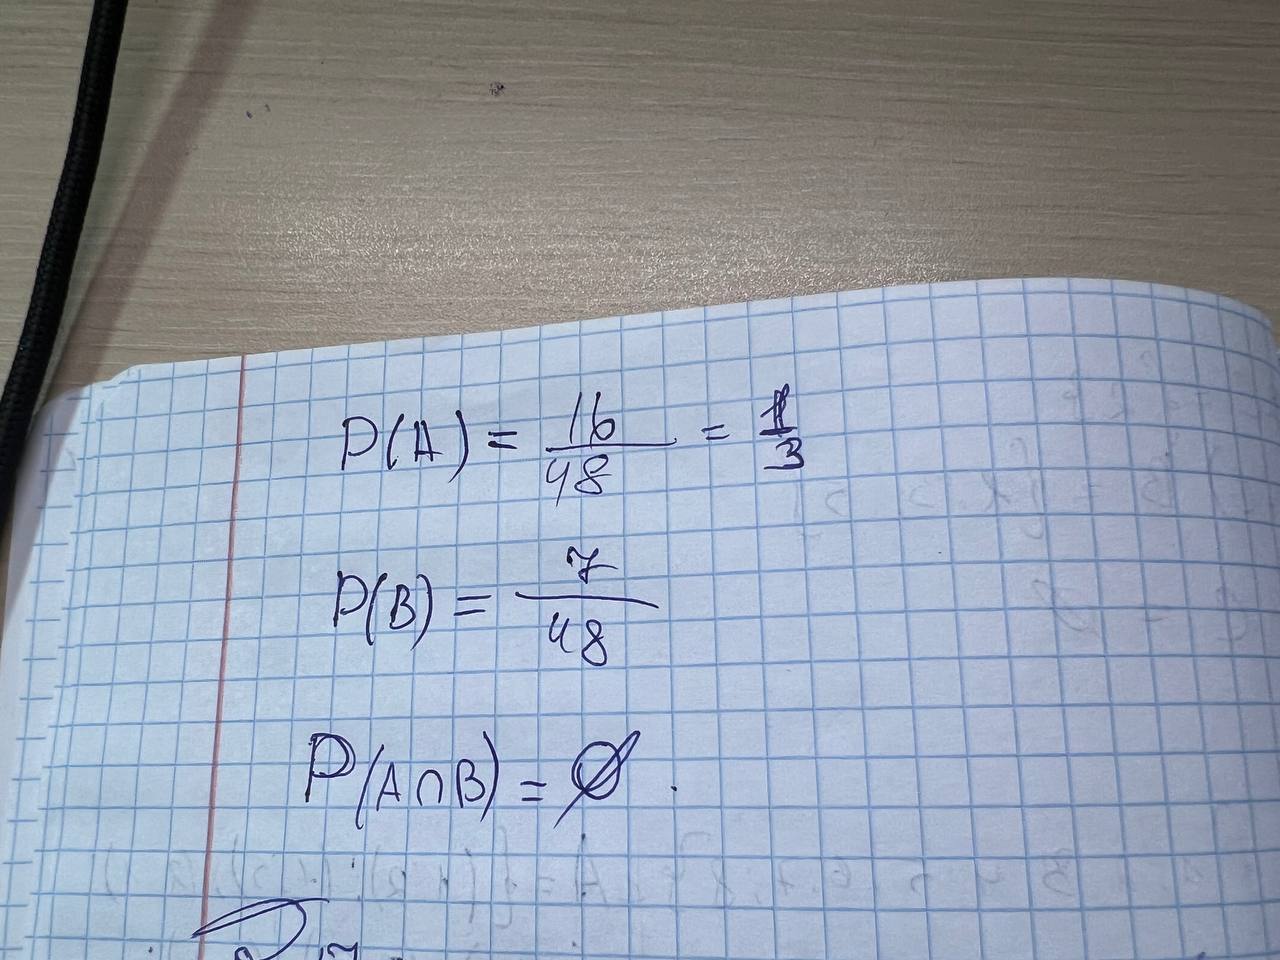 P(A) = 16/48 = 1/3
P(B) = 7/48
P(A∩B) = ∅.